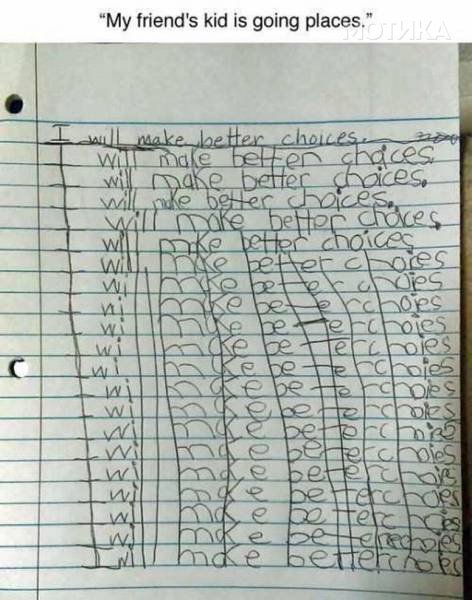 “My friend's kid is going places.”
МОТИКА
I will make better choices.
will make better choices.
will make better choices.
will make better choices.
will make better choices.
will make better choices
will make better choies
wi make better choies
wi make better choies
wi make be ter choies
wi make be ter choies
wi make be ter choies
wi make be ter choies
wi make be ter choies
wi make be ter choies
wi make be ter choies
wi make be ter choies
wi make better choies
wi make better choies
wi make better choies
wi make better choies